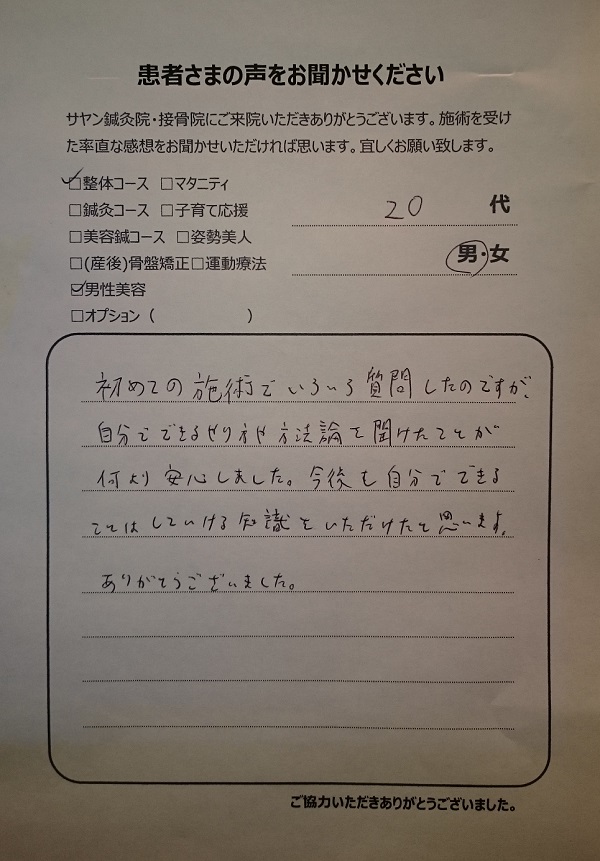 患者さまの声をお聞かせください
サヤン鍼灸院・接骨院にご来院いただきありがとうございます。施術を受け
た率直な感想をお聞かせいただければ思います。宜しくお願い致します。
☑整体コース □マタニティ
□鍼灸コース □子育て応援
20 代
□美容鍼コース □姿勢美人
□(産後)骨盤矯正□運動療法
男・女
☑男性美容
□オプション（　　　　　　）
初めての施術でいろいろ質問したのですが、
自分でできるやり方や方法論を聞けたことが
何より安心しました。今後も自分でできる
ことはしていける知識をいただけたと思います。
ありがとうございました。
ご協力いただきありがとうございました。